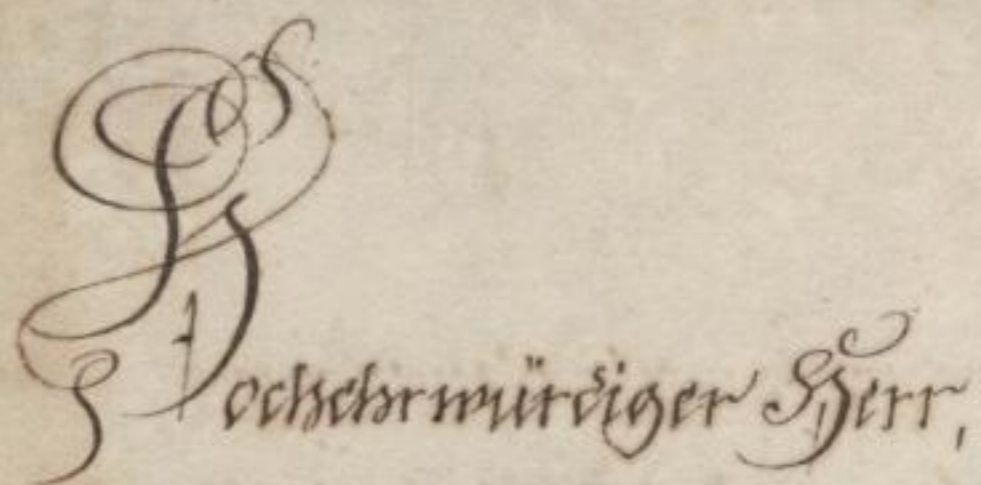 Hochehrwürdiger Herr,